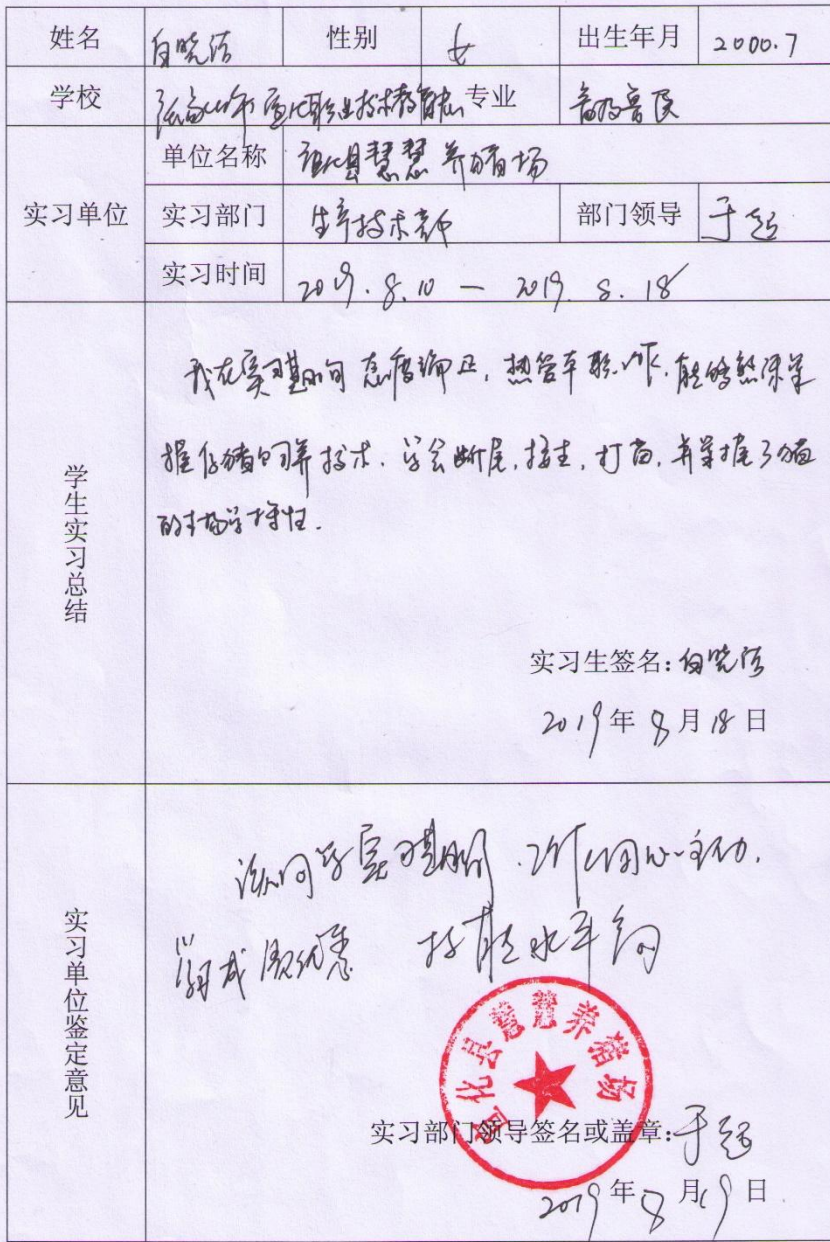 姓名 白晓洁 性别 女 出生年月 2000.7
学校 张家口市宣化职业技术教育中心 专业 畜牧兽医
实习单位 单位名称 宣化县慧慧养猪场
实习部门 生产技术部 部门领导 于超
实习时间 2019.8.10 — 2019.8.18
学生实习总结
我在实习期间态度端正，热爱本职工作，能够熟练掌
握仔猪饲养技术，学会断尾，接生，打苗，并掌握了猪
的生物学特性．
实习生签名：白晓洁
2019年8月18日
实习单位鉴定意见
该同学实习期间，工作细心主动，
学习成绩优秀 技能水平高
宣化县慧慧养猪场
实习部门领导签名或盖章：于超
2019年8月19日